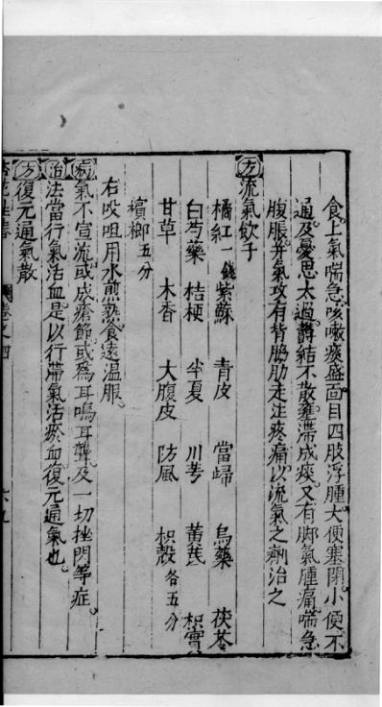 食上氣喘急咳嗽痰盛面目四肢浮腫大便塞閉小便不
通及憂思太過欝結不散壅滯成痰又有脚氣腫痛喘急
腹脹并氣攻有背脇肋走注疼痛以流氣之劑治之
方流氣飲子
橘紅一錢 紫蘇 青皮 當歸 烏藥 茯苓
白芍藥 桔梗 半夏 川芎 黃芪 枳實
甘草 木香 大腹皮 防風 枳殼各五分
檳榔五分
右㕮咀用水煎熟食遠溫服
病氣不宣流或成瘡癤或爲耳鳴耳聾及一切挫閃等症
治法當行氣活血是以行滯氣活瘀血復元通氣也
方復元通氣散
卷之四 六九